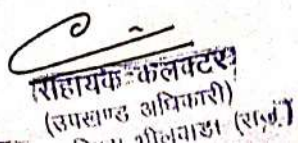 सहायक कलक्टर
(उपखण्ड अधिकारी)
भीलवाडा (राज.)